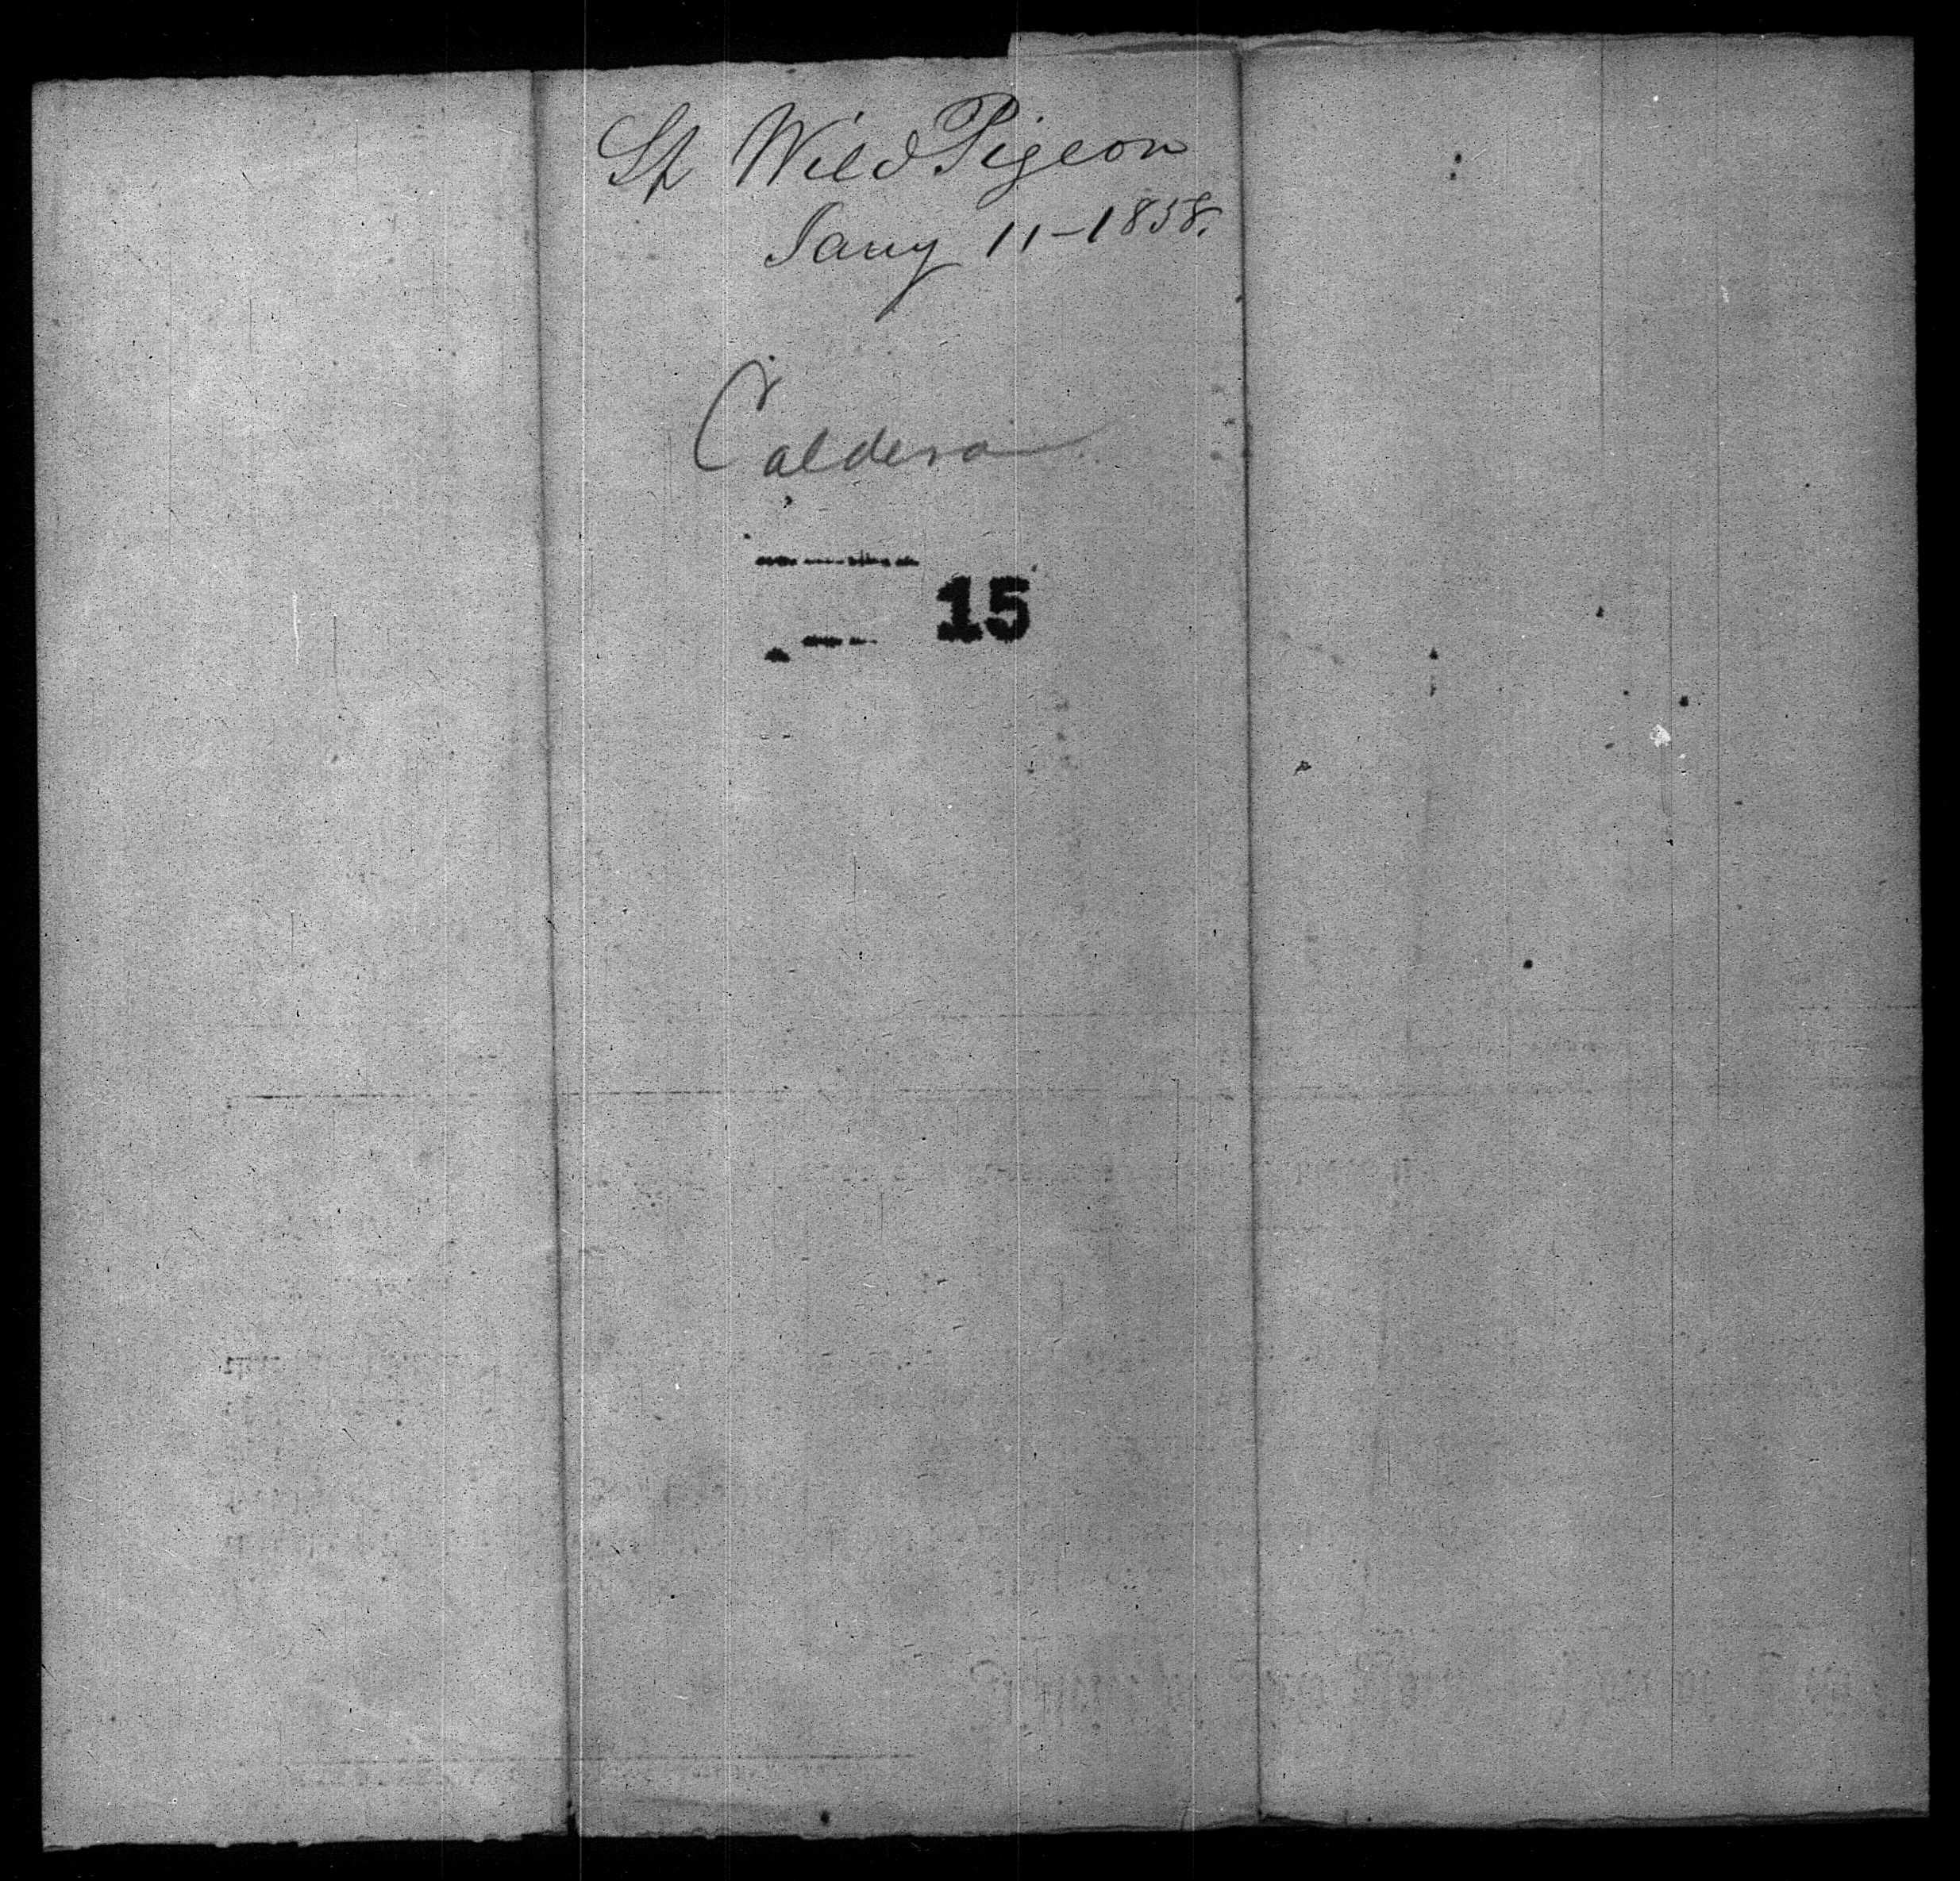 Sp Wild Pigeon
Jany 11-1858.
Caldera
15